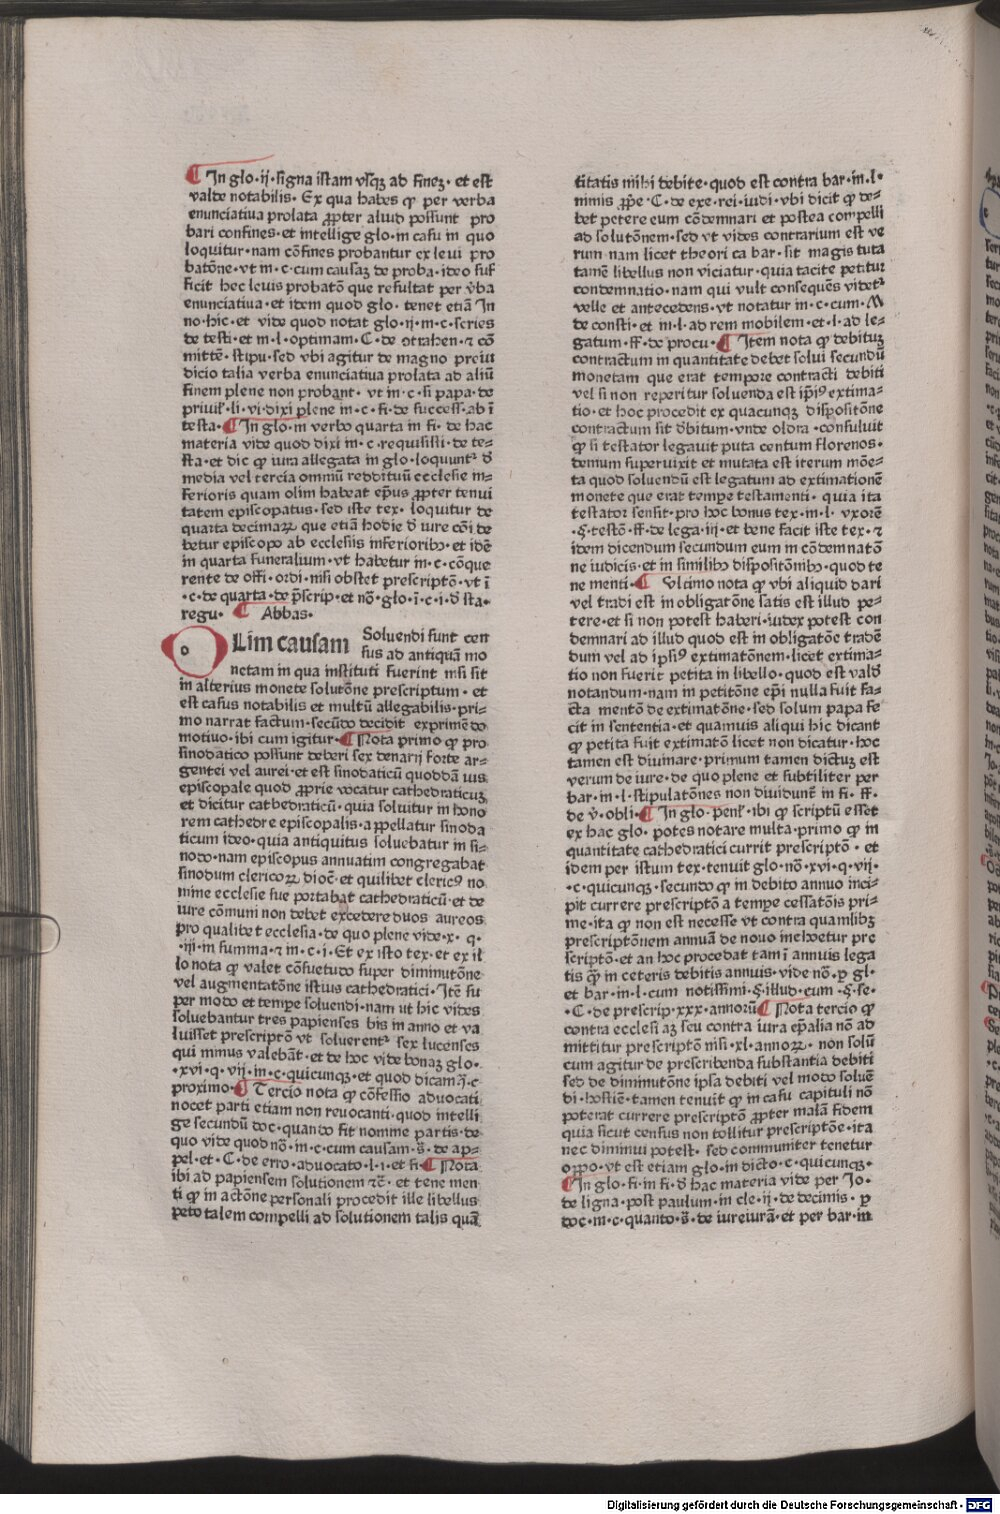 ¶ In glo·ij·signa istam vsqꝫ ad fineꝫ· et est
valde notabilis· Ex qua habes ꝙ per verba
enunciatiua prolata ꝓpter aliud possunt pro
bari confines· et intellige glo·in casu in quo
loquitur·nam cōfines probantur ex leui pro
batōne·vt in·c·cum causaꝫ de proba·ideo suf
ficit hec leuis probatō que resultat per v̄ba
enunciatiua·et idem quod glo· tenet etiā In
no·hic·et vide quod notat glo·ij·in·c·series
de testi·et in·l·optimam·C·de ɔtrahen·⁊ cō
mittē·stipu·sed vbi agitur de magno preiu
dicio talia verba enunciatiua prolata ad aliū
finem plene non probant· vt in·c·si papa·de
priuil̕·li·vi·dixi plene in·c·fi·de success·ab ī
testa·¶ In glo·in verbo quarta in fi·de hac
materia vide quod dixi in·c·requisisti·de te-
sta·et dic ꝙ iura allegata in glo·loquunt᷑ d̄
media vel tercia omniū reddituū ecclesie in-
ferioris quam olim habeat ep̄us ꝓpter tenui
tatem episcopatus·sed iste tex· loquitur de
quarta decimaꝝ que etiā hodie d̄ iure cōi de
betur episcopo ab ecclesiis inferioribꝰ·et idē
in quarta funeralium·vt habetur in·c·cōque
rente de offi·ordi·nisi obstet prescriptō·vt ī
·c·de quarta·de p̄scrip·et nō·glo·ī·c·i·d̄ sta·
regu· ¶ Abbas·
o Lim causam Soluendi sunt cen
sus ad antiquā mo
netam in qua instituti fuerint nisi sit
in alterius monete solutōne prescriptum · et
est casus notabilis et multū allegabilis·pri-
mo narrat factum·secūdo decidit exprimēdo
motiuo·ibi cum igitur·¶ Nota primo ꝙ pro
sinodatico possunt deberi sex denarij forte ar-
gentei vel aurei·et est sinodaticū quoddā ius
episcopale quod ꝓprie vocatur cathedraticuꝫ
et dicitur cathedraticū·quia soluitur in hono
rem cathedre episcopalis·appellatur sinoda
ticum ideo·quia antiquitus soluebatur in si-
nodo·nam episcopus annuatim congregabat
sinodum clericoꝝ dioc̄·et quilibet clericꝰ no
mine ecclesie sue portabat cathedraticū·et de
iure cōmuni non debet excedere duos aureos
pro qualibet ecclesia·de quo plene vide·x· q·
·iij·in summa·⁊ in·c·i·Et ex isto tex·et ex il
lo nota ꝙ valet cōsuetudo super diminutōne
vel augmentatōne istius cathedratici·Itē su
per modo et tempe̅ soluendi·nam ut hic vides
soluebantur tres papienses bis in anno et va
luisset prescriptō vt soluerent᷑ sex lucenses
qui minus valebāt·et de hoc vide bonaꝫ glo·
·xvi·q·vij·in·c·quicunqꝫ·et quod dicam ī·c·
proximo·¶ Tercio nota ꝙ cōfessio aduocati
nocet parti etiam non reuocanti·quod intelli
ge secundū doc·quando fit nomine partis·de
quo vide quod nō·in·c·cum causam·s̄·de ap-
pel·et·C·de erro·aduocato·l·i·et fi·¶ Nota
ibi ad papiensem solutionem ⁊c̄· et tene men
ti ꝙ in actōne personali procedit ille libellus
peto talem compelli ad solutionem talis quā
titatis mihi debite·quod est contra bar·in·l·
nimis ꝓpe̅·C·de exe·rei·iudi·vbi dicit ꝙ de-
bet petere eum cōdemnari et postea compelli
ad solutōnem·sed vt vides contrarium est ve
rum nam licet theori ca bar·sit magis tuta
tamē libellus non viciatur·quia tacite petitur
condemnatio·nam qui vult consequēs videt᷑
velle et antecedens·vt notatur in·c·cum·M
de consti·et in·l·ad rem mobilem·et·l·ad le-
gatum·ff·de procu·¶ Item nota ꝙ debituꝫ
contractum in quantitate debet solui secundū
monetam que erat tempore contracti debiti
vel si non reperitur soluenda est ip̄iꝰ extima-
tio·et hoc procedit ex quacunqꝫ dispositōne
contractum sit d̄bitum·vnde oldra·consuluit
ꝙ si testator legauit puta centum florenos·
demum superuixit et mutata est iterum mōe-
ta quod soluendū est legatum ad extimationē
monete que erat tempe̅ testamenti· quia ita
testator sensit·pro hoc bonus tex·in·l· vxorē
·§·testō·ff·de lega·iij·et bene facit iste tex·⁊
idem dicendum secundum eum in cōdemnatō
ne iudicis·et in similibꝰ dispositōnibꝰ·quod te
ne menti·¶ Vltimo nota ꝙ vbi aliquid dari
vel tradi est in obligatōne satis est illud pe-
tere·et si non potest haberi·iudex potest con
demnari ad illud quod est in obligatōne tradē
dum vel ad ipsiꝰ extimatōnem·licet extima-
tio non fuerit petita in libello·quod est vald̄
notandum·nam in petitōne ep̄i nulla fuit fa-
cta mentō de extimatōne·sed solum papa fe
cit in sententia·et quamuis aliqui hic dicant
ꝙ petita fuit extimatō licet non dicatur·hoc
tamen est diuinare·primum tamen dictuꝫ est
verum de iure·de quo plene et subtiliter per
bar·in·l·stipulatōnes non diuidunt᷑ in fi· ff·
de v̄·obli·¶ In glo·penl̕·ibi ꝙ scriptū esset
ex hac glo· potes notare multa·primo ꝙ in
quantitate cathedratici currit prescriptō · et
idem per istum tex·tenuit glo·nō·xvi·q·vij·
·c·quicunqꝫ·secundo ꝙ in debito annuo inci-
pit currere prescriptō a tempe̅ cessatōis pri-
me·ita ꝙ non est necesse vt contra quamlibꝫ
prescriptōnem annuā de nouo inchoetur pre
scriptō·et an hoc procedat tam ī annuis lega
tis ꝙ̄ in ceteris debitis annuis·vide nō·ꝑ gl·
et bar·in·l·cum notissimi·§·illud·cum·§·se·
·C·de prescrip·xxx·annorū¶ Nota tercio ꝙ
contra ecclesi aꝫ seu contra iura ep̄alia nō ad
mittitur prescriptō nisi·xl·annoꝝ· non solū
cum agitur de prescribenda substantia debiti
sed de diminutōne ipsa debiti vel modo soluē
di·hostiē·tamen tenuit ꝙ in casu capituli nō
poterat currere prescriptō ꝓpter malā fidem
quia sicut census non tollitur prescriptōe·ita
nec diminui potest· sed communiter tenetur
oppo·vt est etiam glo·in dicto·c·quicunqꝫ·
¶ In glo·fi·in fi·d̄ hac materia vide per Io·
de ligna·post paulum·in cle·ij·de decimis· ꝑ
doc·in·c·quanto·s̄·de iureiurā·et per bar·in
Digitalisierung gefördert durch die Deutsche Forschungsgemeinschaft - DFG